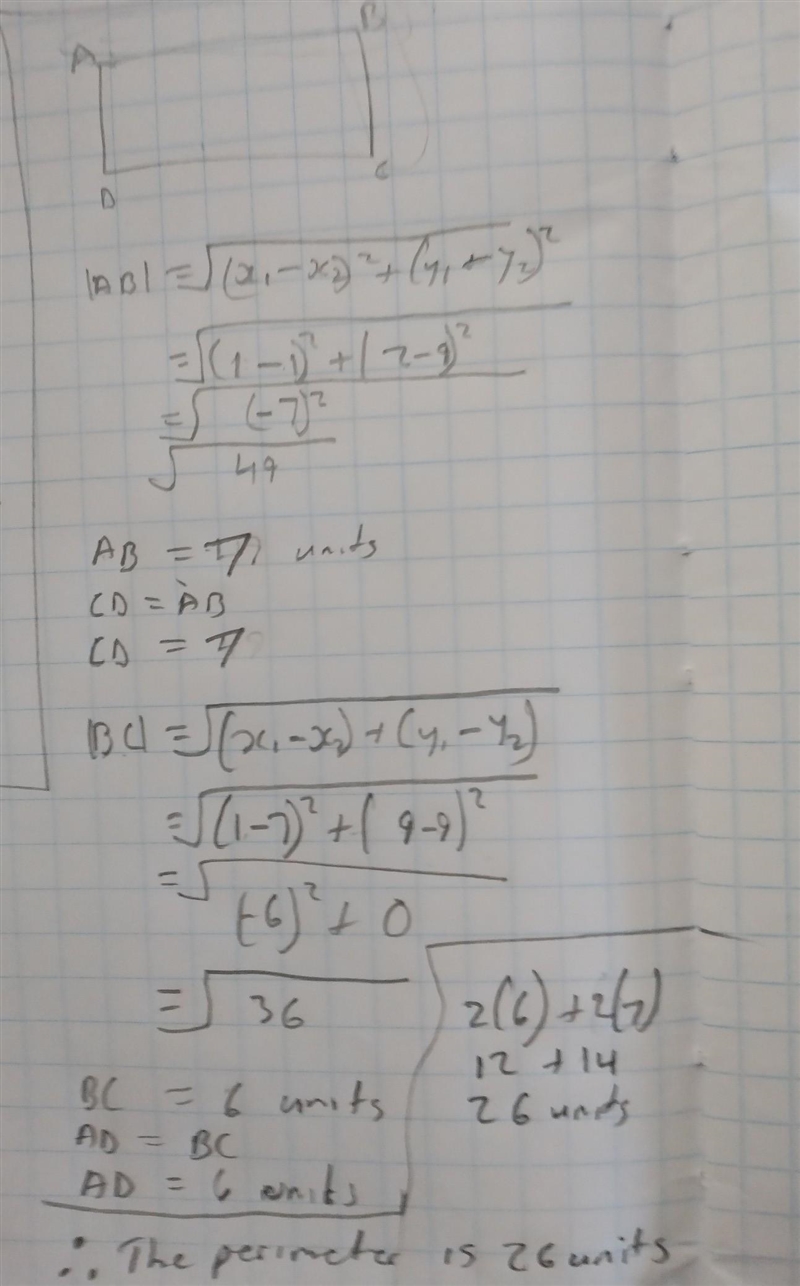 A B
D C
|AB| = √(x₁ - x₂)² + (y₁ + y₂)²
= √(1 - 1)² + (2 - 9)²
= √(-7)²
√49
AB = 7 units
CD = AB
CD = 7
|BC| = √(x₁ - x₂) + (y₁ - y₂)
= √(1-7)² + (9-9)²
= √(-6)² + 0
= √36
BC = 6 units
AD = BC
AD = 6 units
2(6) + 2(7)
12 + 14
26 units
∴ The perimeter is 26 units